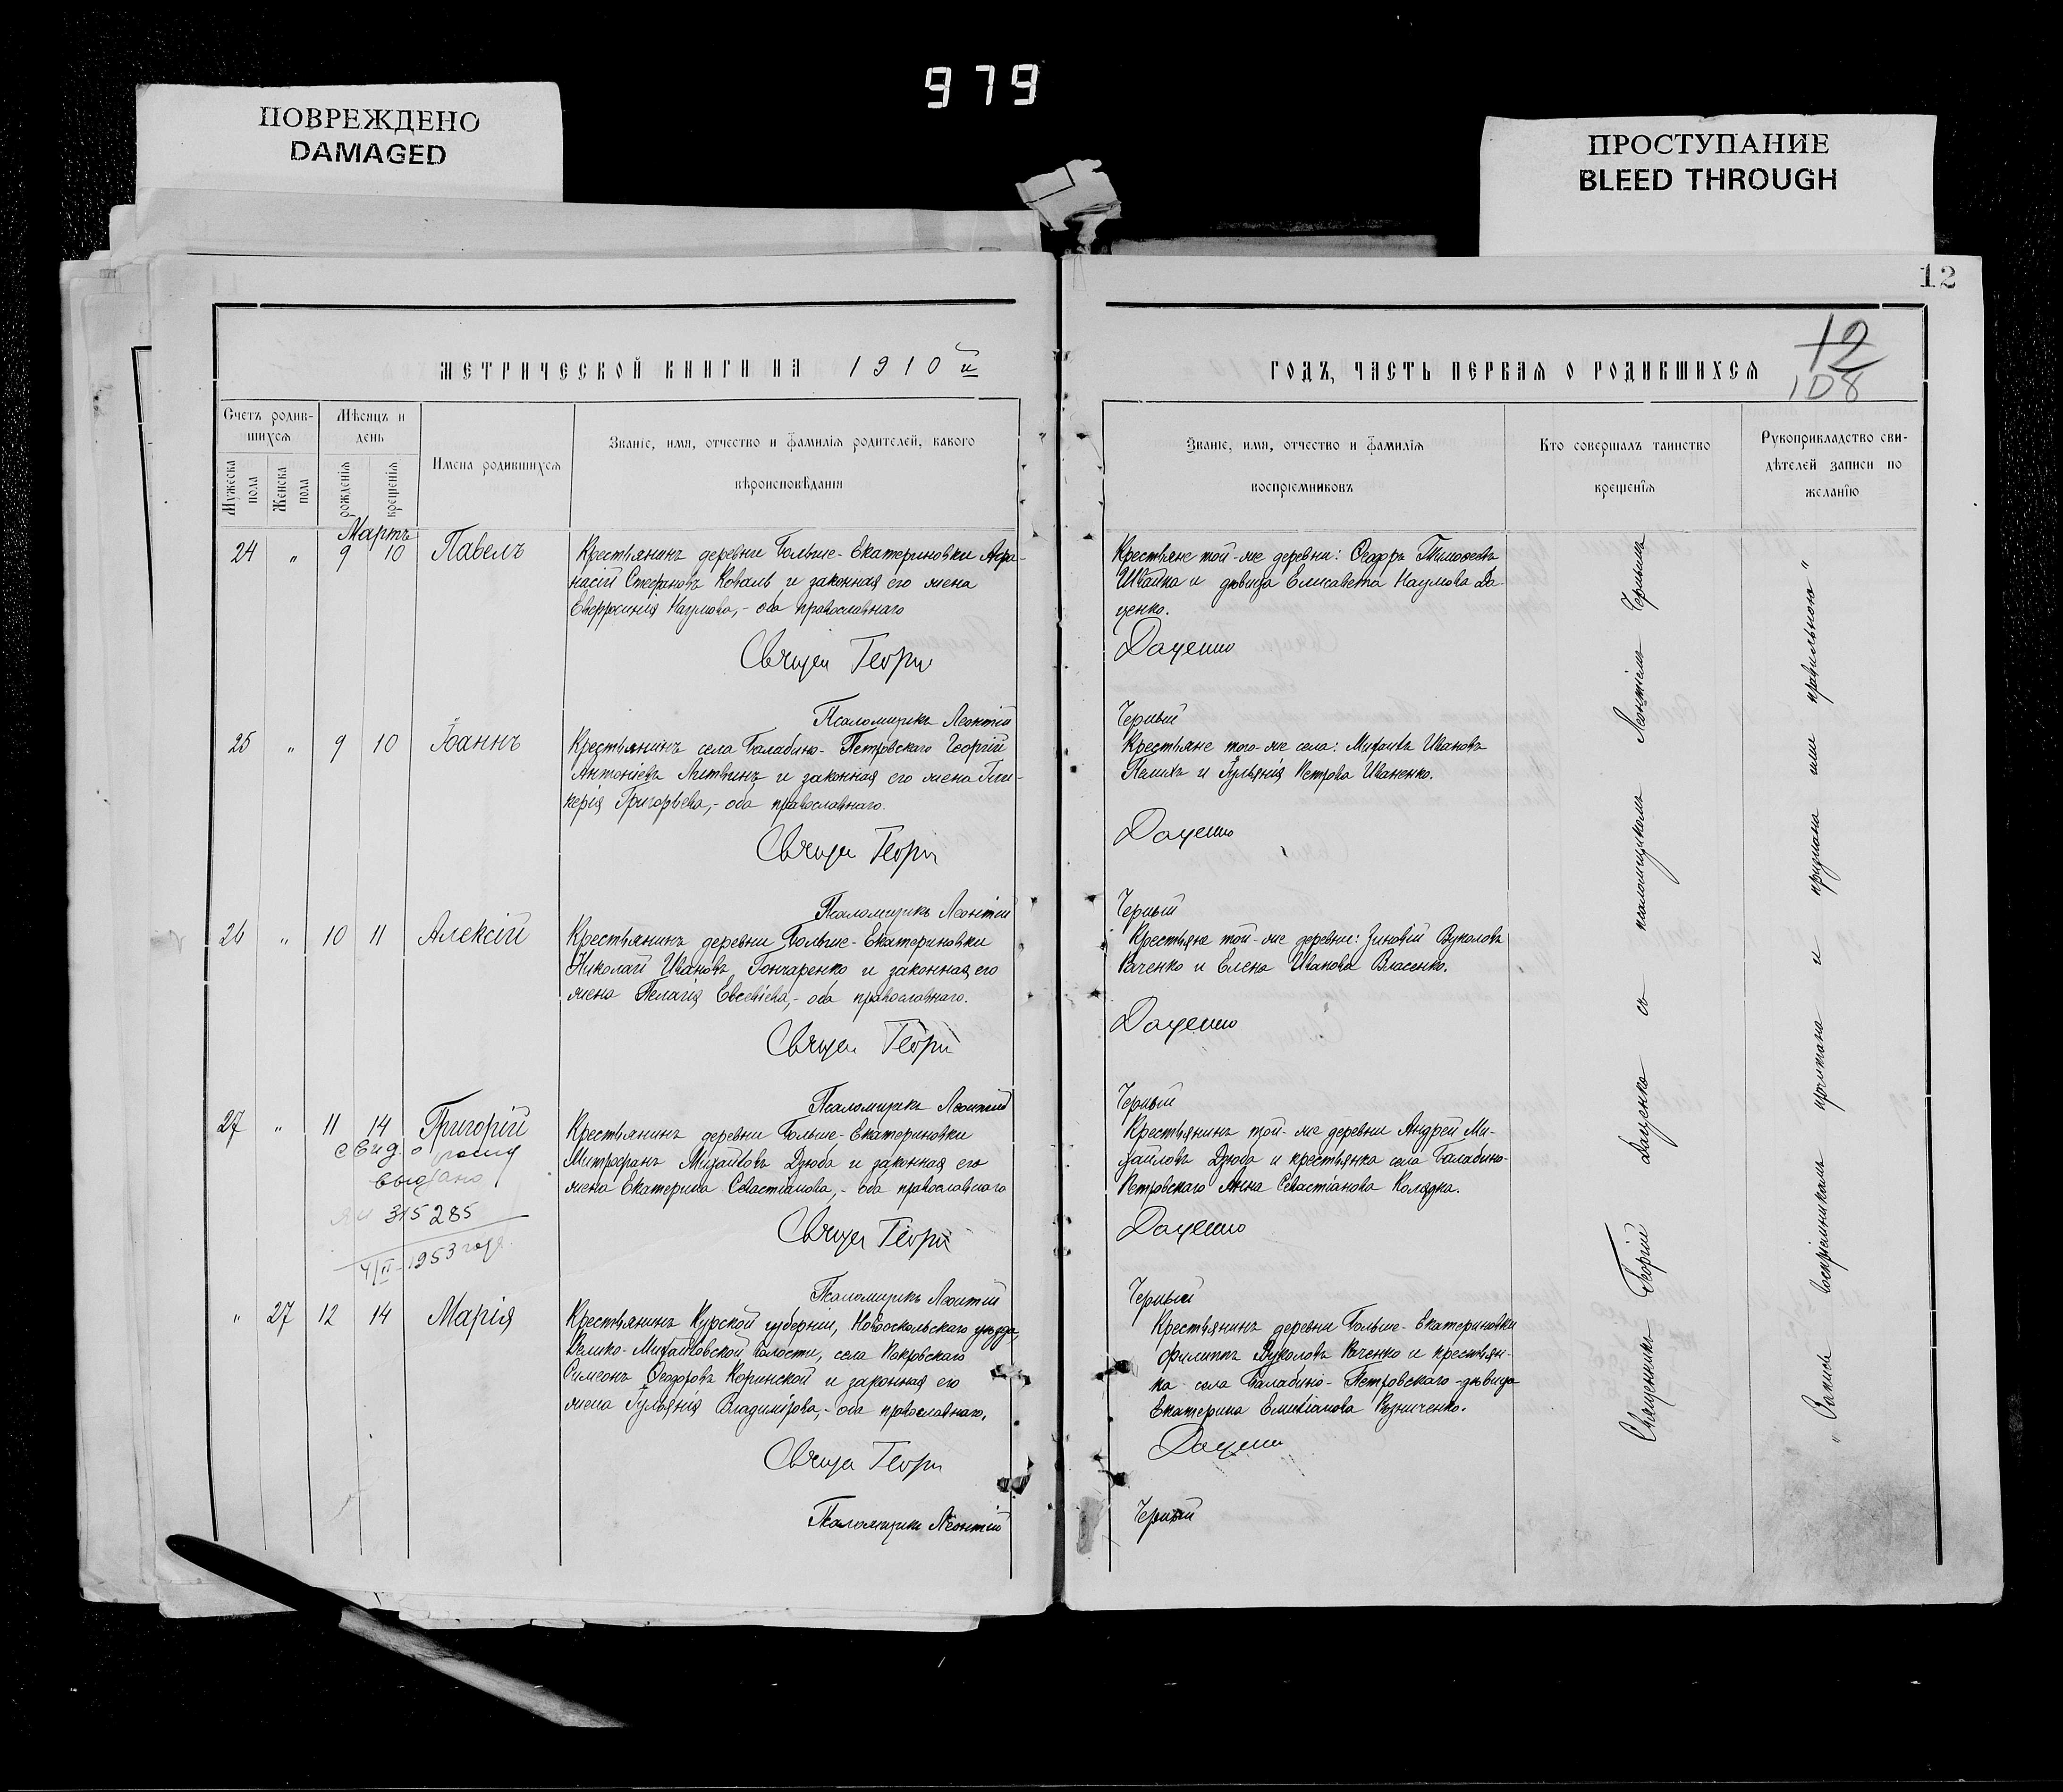 979
ПОВРЕЖДЕНО
DAMAGED
ПРОСТУПАНИЕ
BLEED THROUGH
МЕТРИЧЕСКОЙ КНИГИ НА 1910 й
Счетъ родившихся
Мужеска пола
Женска пола
Мѣсяцъ и день
рожденія
крещенія
Имена родившихся
Званіе, имя, отчество и фамилія родителей, какого
вѣроисповѣданія
Мартъ
24 " 9 10 Павелъ
Крестьянинъ деревни Больше-Екатериновки Афа-
насій Стефановъ Коваль и законная его жена
Евфросинія Наумова,- оба православнаго
Священ Георги
Псаломщикъ Леонтій
25 " 9 10 Іоаннъ
Крестьянинъ села Балабино-Петровскаго Георгій
Антоніевъ Литвинъ и законная его жена Гли-
керія Григорьева,- оба православнаго.
Священ Георги
Псаломщикъ Леонтій
26 " 10 11 Алексій
Крестьянинъ деревни Больше-Екатериновки
Николай Ивановъ Гончаренко и законная его
жена Пелагія Евсевіева,- оба православнаго.
Священ Георги
Псаломщикъ Леонтій
27 " 11 14 Григорій
свид. о
выдано
315285
1953 года
Крестьянинъ деревни Больше-Екатериновки
Митрофанъ Михайловъ Дзюба и законная его
жена Екатерина Севастіанова,- оба православнаго
Священ Георги
Псаломщикъ Леонтій
" 27 12 14 Марія
Крестьянинъ Курской губерніи, Новооскольскаго уѣзда,
Велико-Михайловской волости, села Покровскаго
Симеонъ Ѳеодоровъ Коринской и законная его
жена Іуліанія Владимірова,- оба православнаго.
Священ Георги
Псаломщикъ Леонтій
12
ГОДЪ, ЧАСТЬ ПЕРВАЯ О РОДИВШИХСЯ
12
108
Званіе, имя, отчество и фамилія
воспріемниковъ
Кто совершалъ таинство
крещенія
Рукоприкладство сви-
дѣтелей записи по
желанію
Крестьяне той-же деревни: Ѳеодоръ Тимоѳеевъ
Швайка и дѣвица Елисавета Наумова Да-
ценко.
Даценко
Черный
Крестьяне того-же села: Михаилъ Ивановъ
и Іуліанія Петрова Иваненко.
Даценко
Черный
Крестьяне той-же деревни: Зиновій Вуколовъ
Ваченко и Елена Иванова Власенко.
Даценко
Черный
Крестьянинъ той-же деревни Андрей Ми-
хайловъ Дзюба и крестьянка села Балабино-
Петровскаго Анна Севастіанова Колядка.
Даценко
Черный
Крестьянинъ деревни Больше-Екатериновки
Филиппъ Вуколовъ Ваченко и крестьян-
ка села Балабино-Петровскаго-дѣвица
Екатерина Емиліанова
Даценко
Черный
Священникъ Георгій Даценко съ псаломщикомъ Леонтіемъ Чернымъ
"Запись воспріемниками прочитана и признана ими правильною"